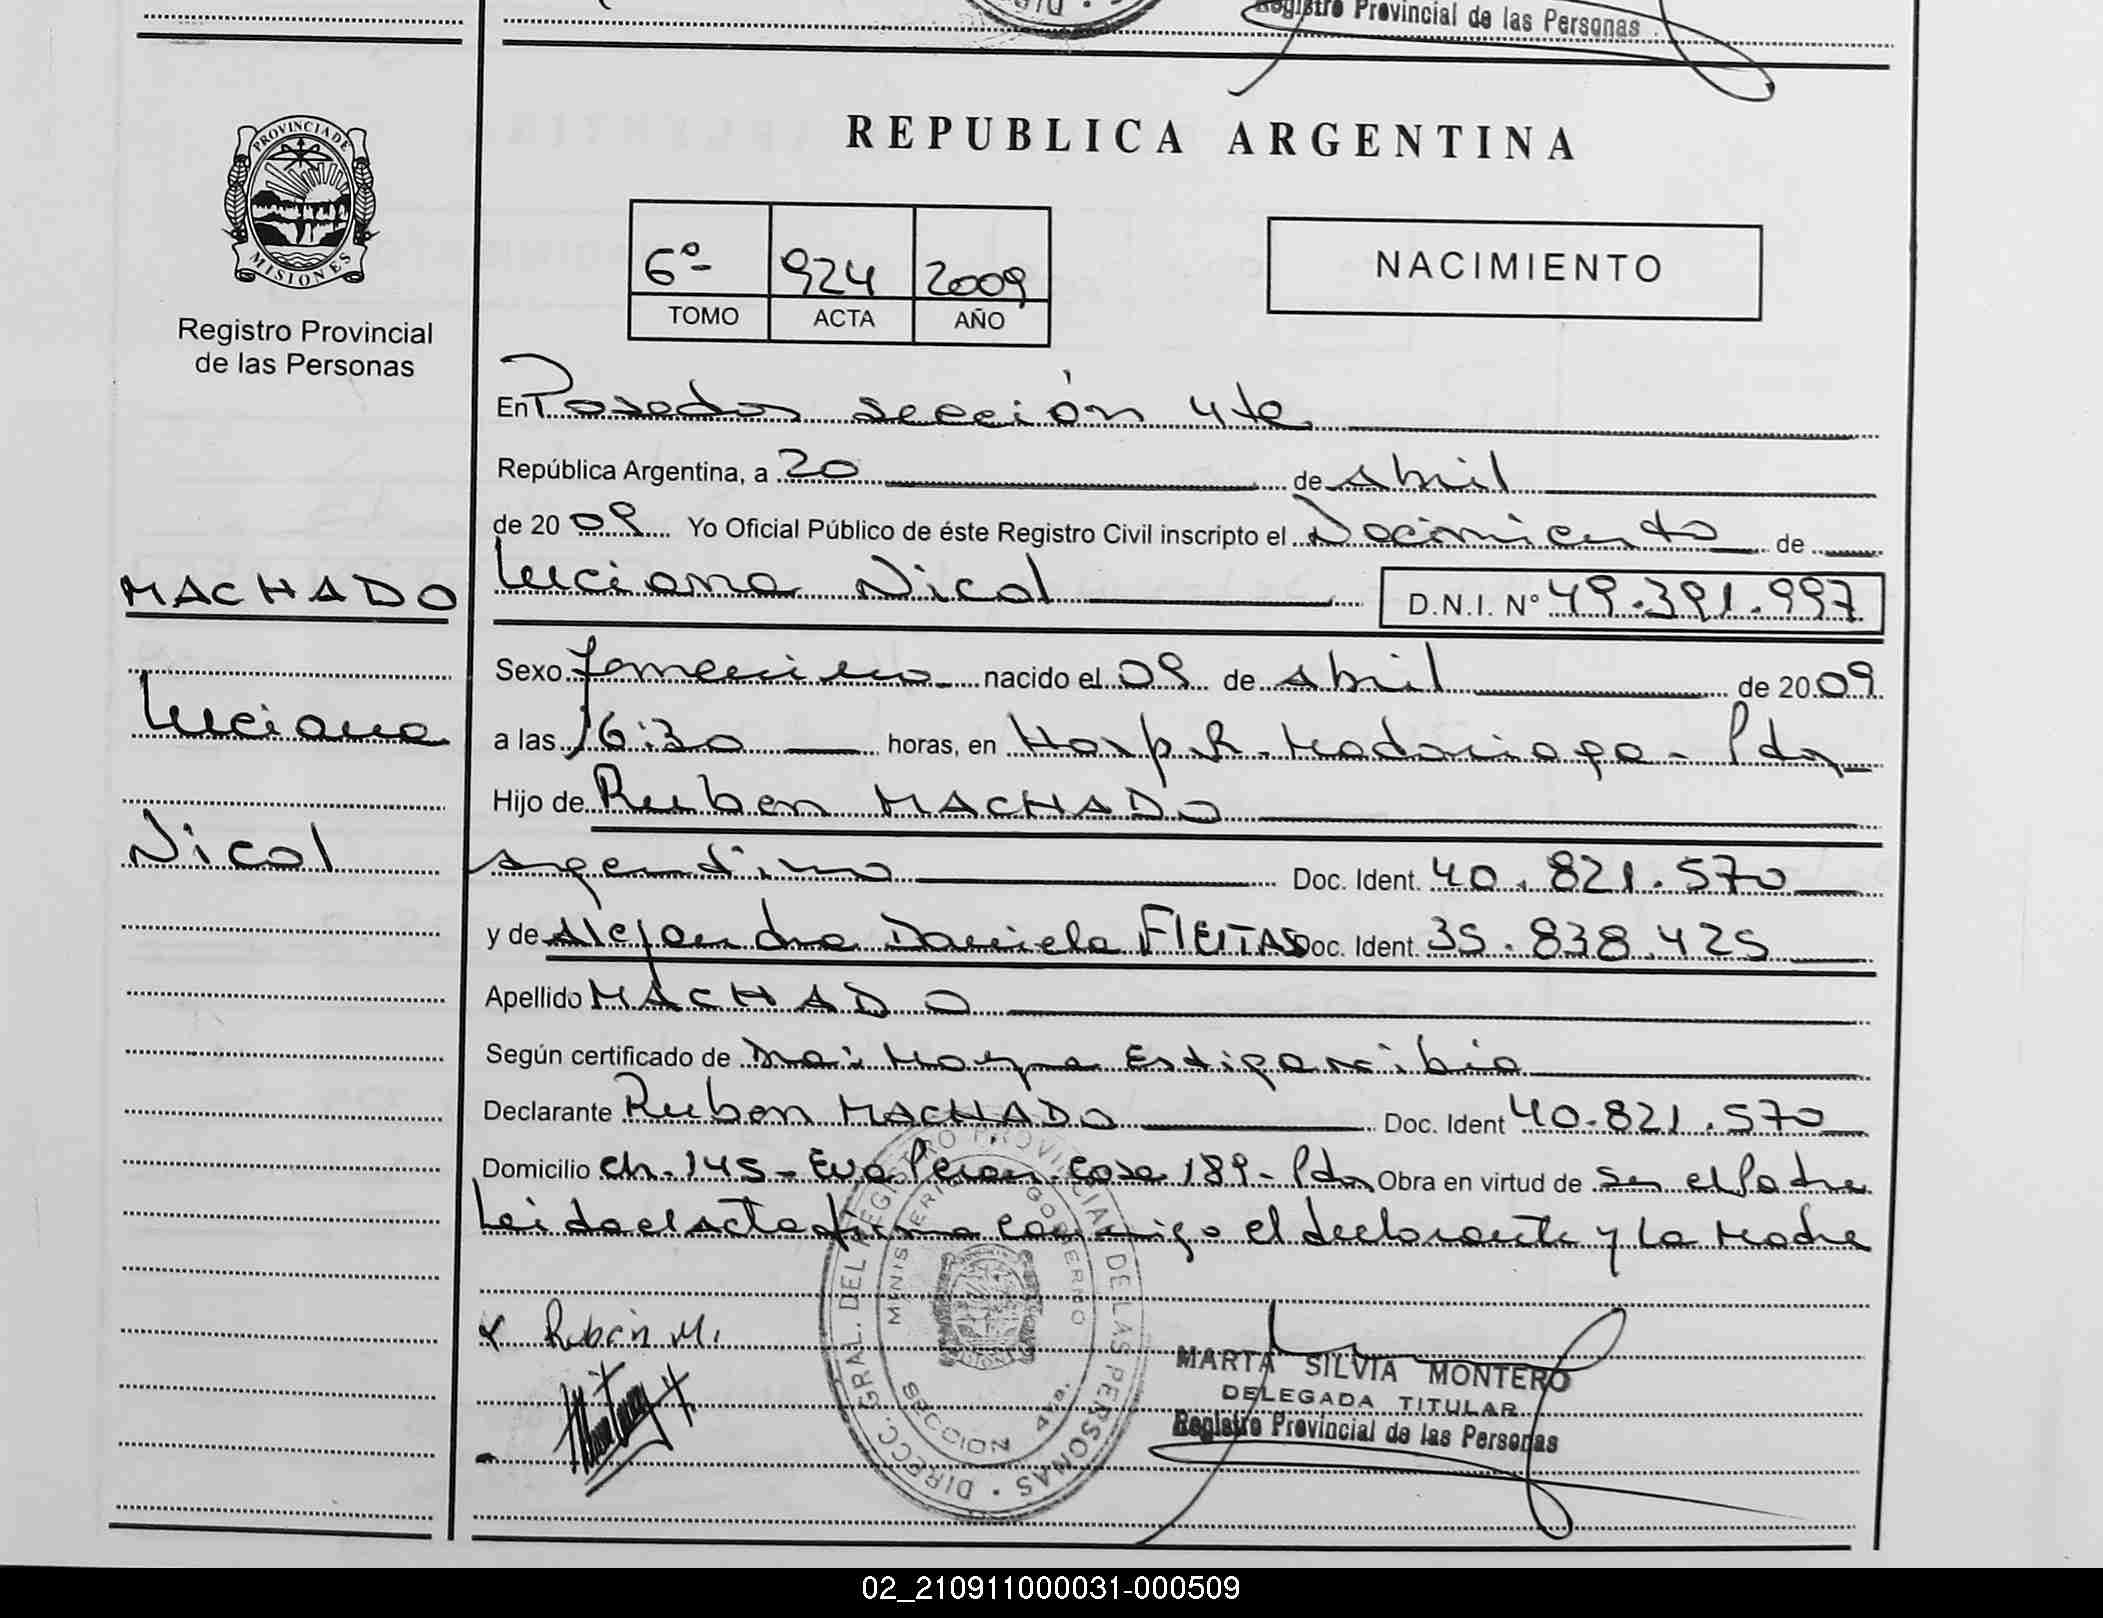 Registro Provincial de las Personas
PROVINCIA DE
MISIONES
Registro Provincial
de las Personas
MACHADO
Luciana
Nicol
REPUBLICA ARGENTINA
6º 924 2009
TOMO ACTA AÑO
NACIMIENTO
En Posadas sección 4ta
República Argentina, a 20 de Abril
de 20 09 Yo Oficial Público de éste Registro Civil inscripto el Nacimiento de
Luciana Nicol D.N.I. Nº 49.391.997
Sexo femenino nacido el 09 de Abril de 20 09
a las 16:30 horas, en Hosp. R. Madariaga - Pdas
Hijo de Ruben MACHADO
Argentino Doc. Ident. 40.821.570
y de Alejandra Daniela FLEITAS Doc. Ident. 35.838.425
Apellido MACHADO
Según certificado de Estigarribia
Declarante Ruben MACHADO Doc. Ident 40.821.570
Domicilio ch. 145 - Eva Peron casa 189 - Pdas Obra en virtud de ser el Padre
Leida el acta firma conmigo el declarante y la Madre
x Rubén M.
DIRECC. GRAL. DEL REGISTRO PROVINCIAL DE LAS PERSONAS
MINISTERIO GOBIERNO
SECCION 4ta.
MARTA SILVIA MONTERO
DELEGADA TITULAR
Registro Provincial de las Personas
02_210911000031-000509